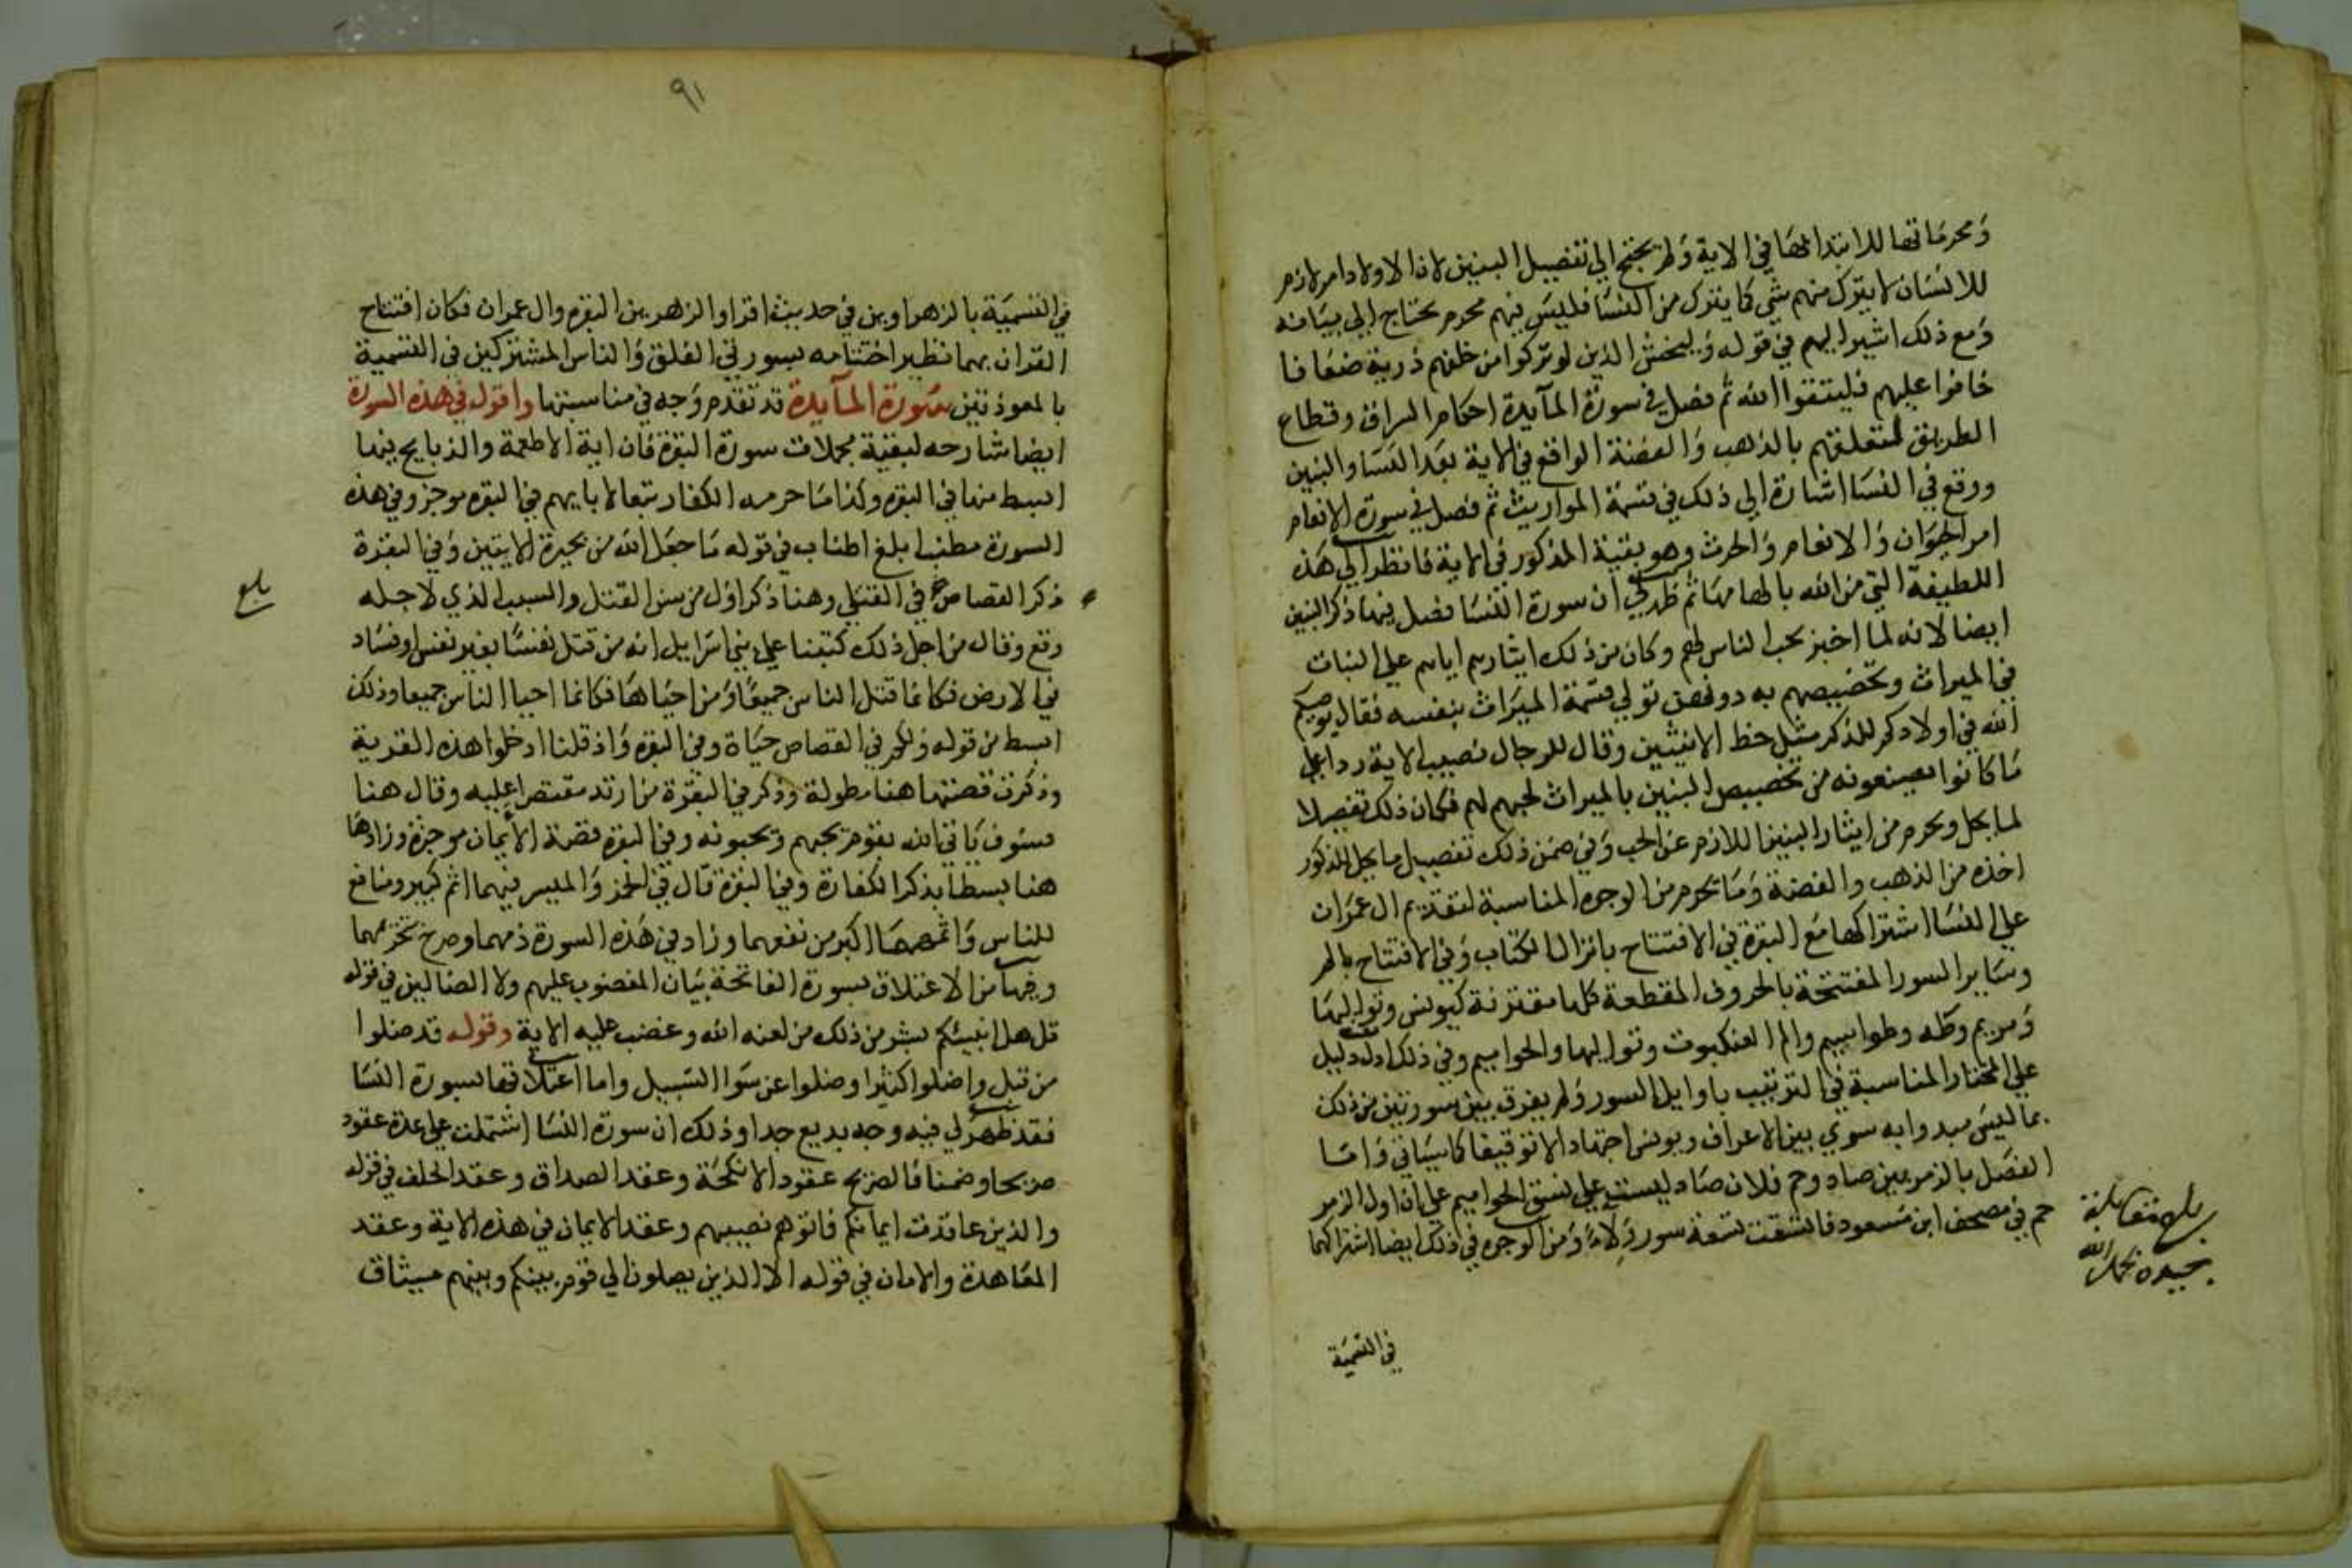 ومحرماتها للابتدا بها في الاية ولم يحتج الي تفصيل البنين لان الاولاد امر لازم
للانسان لا يترك منهم شي كما يترك من النسا فليس فيهم محرم يحتاج الي بيانه
ومع ذلك اشير اليهم في قوله وليخش الذين لو تركوا من خلفهم ذرية ضعافا
خافوا عليهم فليتقوا الله ثم فصل في سورة المآيدة احكام السراق وقطاع
الطريق لتعلقهم بالذهب والفضة الواقع في الاية بعد النسا والبنين
ووقع في النسا اشارة الي ذلك في قسمة المواريث ثم فصل في سورة الانعام
امر الحيوان والانعام والحرث وهو بقية المذكور في الاية فانظر الي هذه
اللطيفة التي من الله بالهامها ثم ظهر لي ان سورة النسا فصل فيها ذكر البنين
ايضا لانه لما اخبر بحب الناس لهم وكان من ذلك ايثارهم اياهم علي البنات
في الميراث وتخصيصهم به دونهن تولي قسمة الميراث بنفسه فقال يوصيكم
الله في اولادكم للذكر مثل حظ الانثيين وقال للرجال نصيب الاية ردا علي
ما كانوا يصنعونه من تخصيص البنين بالميراث لحبهم لهم فكان ذلك تفصيلا
لما يحل ويحرم من ايثار البنين اللازم عن الحب وفي ضمن ذلك تفصيل ما يحل للذكور
اخذه من الذهب والفضة وما يحرم من الوجوه المناسبة لتقديم ال عمران
علي النسا اشتراكها مع البقرة في الافتتاح بانزال الكتاب وفي الافتتاح بالم
وساير السور المفتتحة بالحروف المقطعة كلها مقترنة كيونس وتواليها
ومريم وطه وطواسيم والم العنكبوت وتواليها والحواميم وفي ذلك ادل دليل
علي اختار المناسبة في الترتيب باوايل السور ولم يفرق بين سورتين من ذلك
بما ليس مبدوا به سوي بين الاعراف ويونس اجتهادا لا توقيفا كما سياتي واما
الفصل بالزمر بين صاد وحم فلان صاد ليست علي نسق الحواميم علي ان اول الزمر
حم في مصحف ابن مسعود فاتسقت تسعة سور ولاء ومن الوجوه في ذلك ايضا اشتراكهما
بلغ مقابلة
بحمد الله
في التسمية
٩١
في التسمية بالزهراوين في حديث اقراوا الزهرين البقرة وال عمران فكان افتتاح
القران بهما نظير اختتامه بسورتي الفلق والناس المشتركين في التسمية
بالمعوذتين سورة المآيدة قد تقدم وجه في مناسبتها واقول في هذه السورة
ايضا شارحه لبقية مجملات سورة البقرة فان اية الاطعمة والذبايح فيها
ابسط منها في البقرة وكذا ما حرمه الكفار تبعا لابايهم في البقرة موجز وفي هذه
السورة مطنب ابلغ اطناب في قوله ما جعل الله من بحيرة الايتين وفي البقرة
ذكر القصاص في القتلي وهنا ذكر اول من سن القتل والسبب الذي لاجله
وقع وقال من اجل ذلك كتبنا علي بني اسرايل انه من قتل نفسا بغير نفس او فساد
في الارض فكانما قتل الناس جميعا ومن احياها فكانما احيا الناس جميعا وذلك
ابسط من قوله ولكم في القصاص حياة وفي البقرة واذ قلنا ادخلوا هذه القرية
وذكرت قصتها هنا مطولة وذكر في البقرة من ارتد مقتصرا عليه وقال هنا
فسوف ياتي الله بقوم يحبهم ويحبونه وفي البقرة قصة الأيمان موجزة وزادها
هنا بسطا بذكر الكفارة وفي البقرة قال في الخمر والميسر فيهما اثم كبير ومنافع
للناس واثمهما اكبر من نفعهما وزاد في هذه السورة ذمهما وصرح بتحريمهما
وفيها من الاعتلاق بسورة الفاتحة بيان المغضوب عليهم ولا الضالين في قوله
قل هل انبيئكم بشر من ذلك من لعنه الله وغضب عليه الاية وقوله قد ضلوا
من قبل واضلوا كثيرا وضلوا عن سوا السبيل واما اعتلاقها بسورة النسا
فقد ظهر لي فيه وجه بديع جدا وذلك ان سورة النسا اشتملت علي عدة عقود
صريحا وضمنا فالصريح عقود الانكحة وعقد الصداق وعقد الحلف في قوله
والذين عاقدت ايمانكم فاتوهم نصيبهم وعقد الايمان في هذه الاية وعقد
المعاهدة والامان في قوله الا الذين يصلون الي قوم بينكم وبينهم ميثاق
بلغ